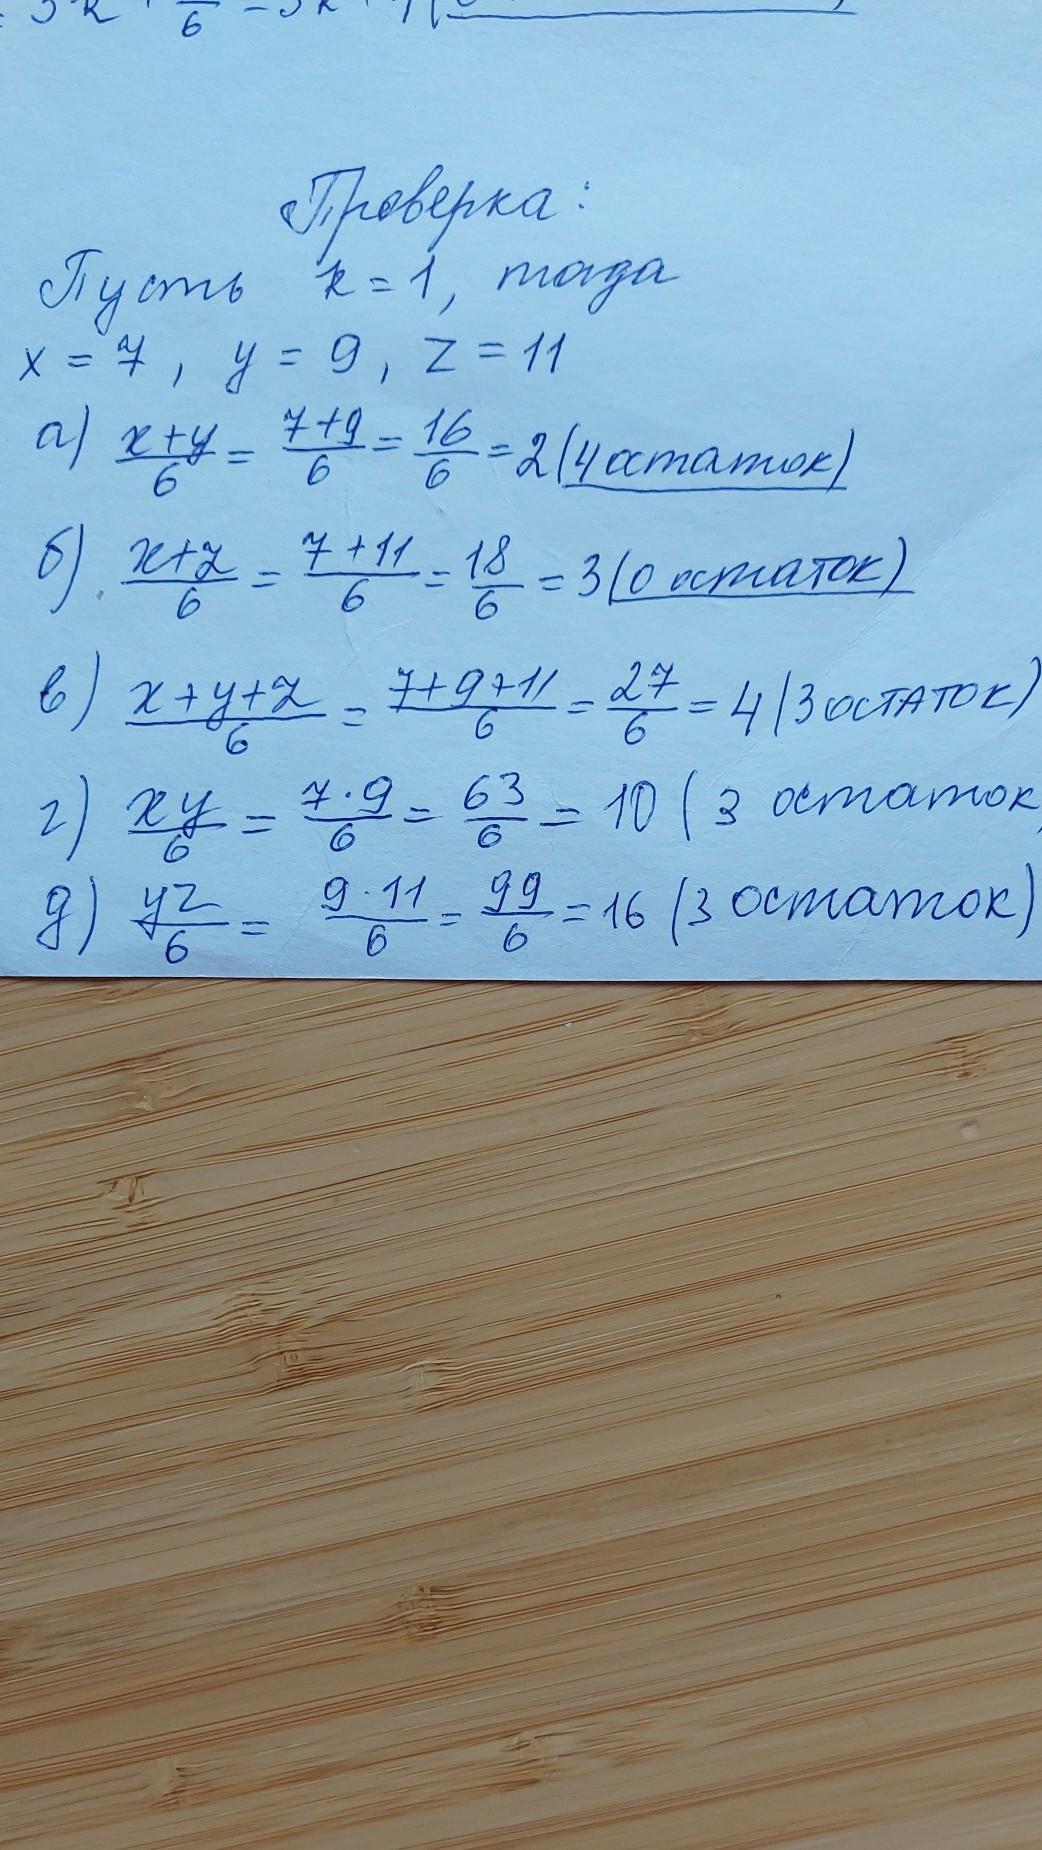 Проверка:
Пусть k = 1, тогда
x = 7, y = 9, z = 11
а) (x+y)/6 = (7+9)/6 = 16/6 = 2 (4 остаток)
б) (x+z)/6 = (7+11)/6 = 18/6 = 3 (0 остаток)
в) (x+y+z)/6 = (7+9+11)/6 = 27/6 = 4 (3 остаток)
г) xy/6 = 7·9/6 = 63/6 = 10 (3 остаток)
д) yz/6 = 9·11/6 = 99/6 = 16 (3 остаток)